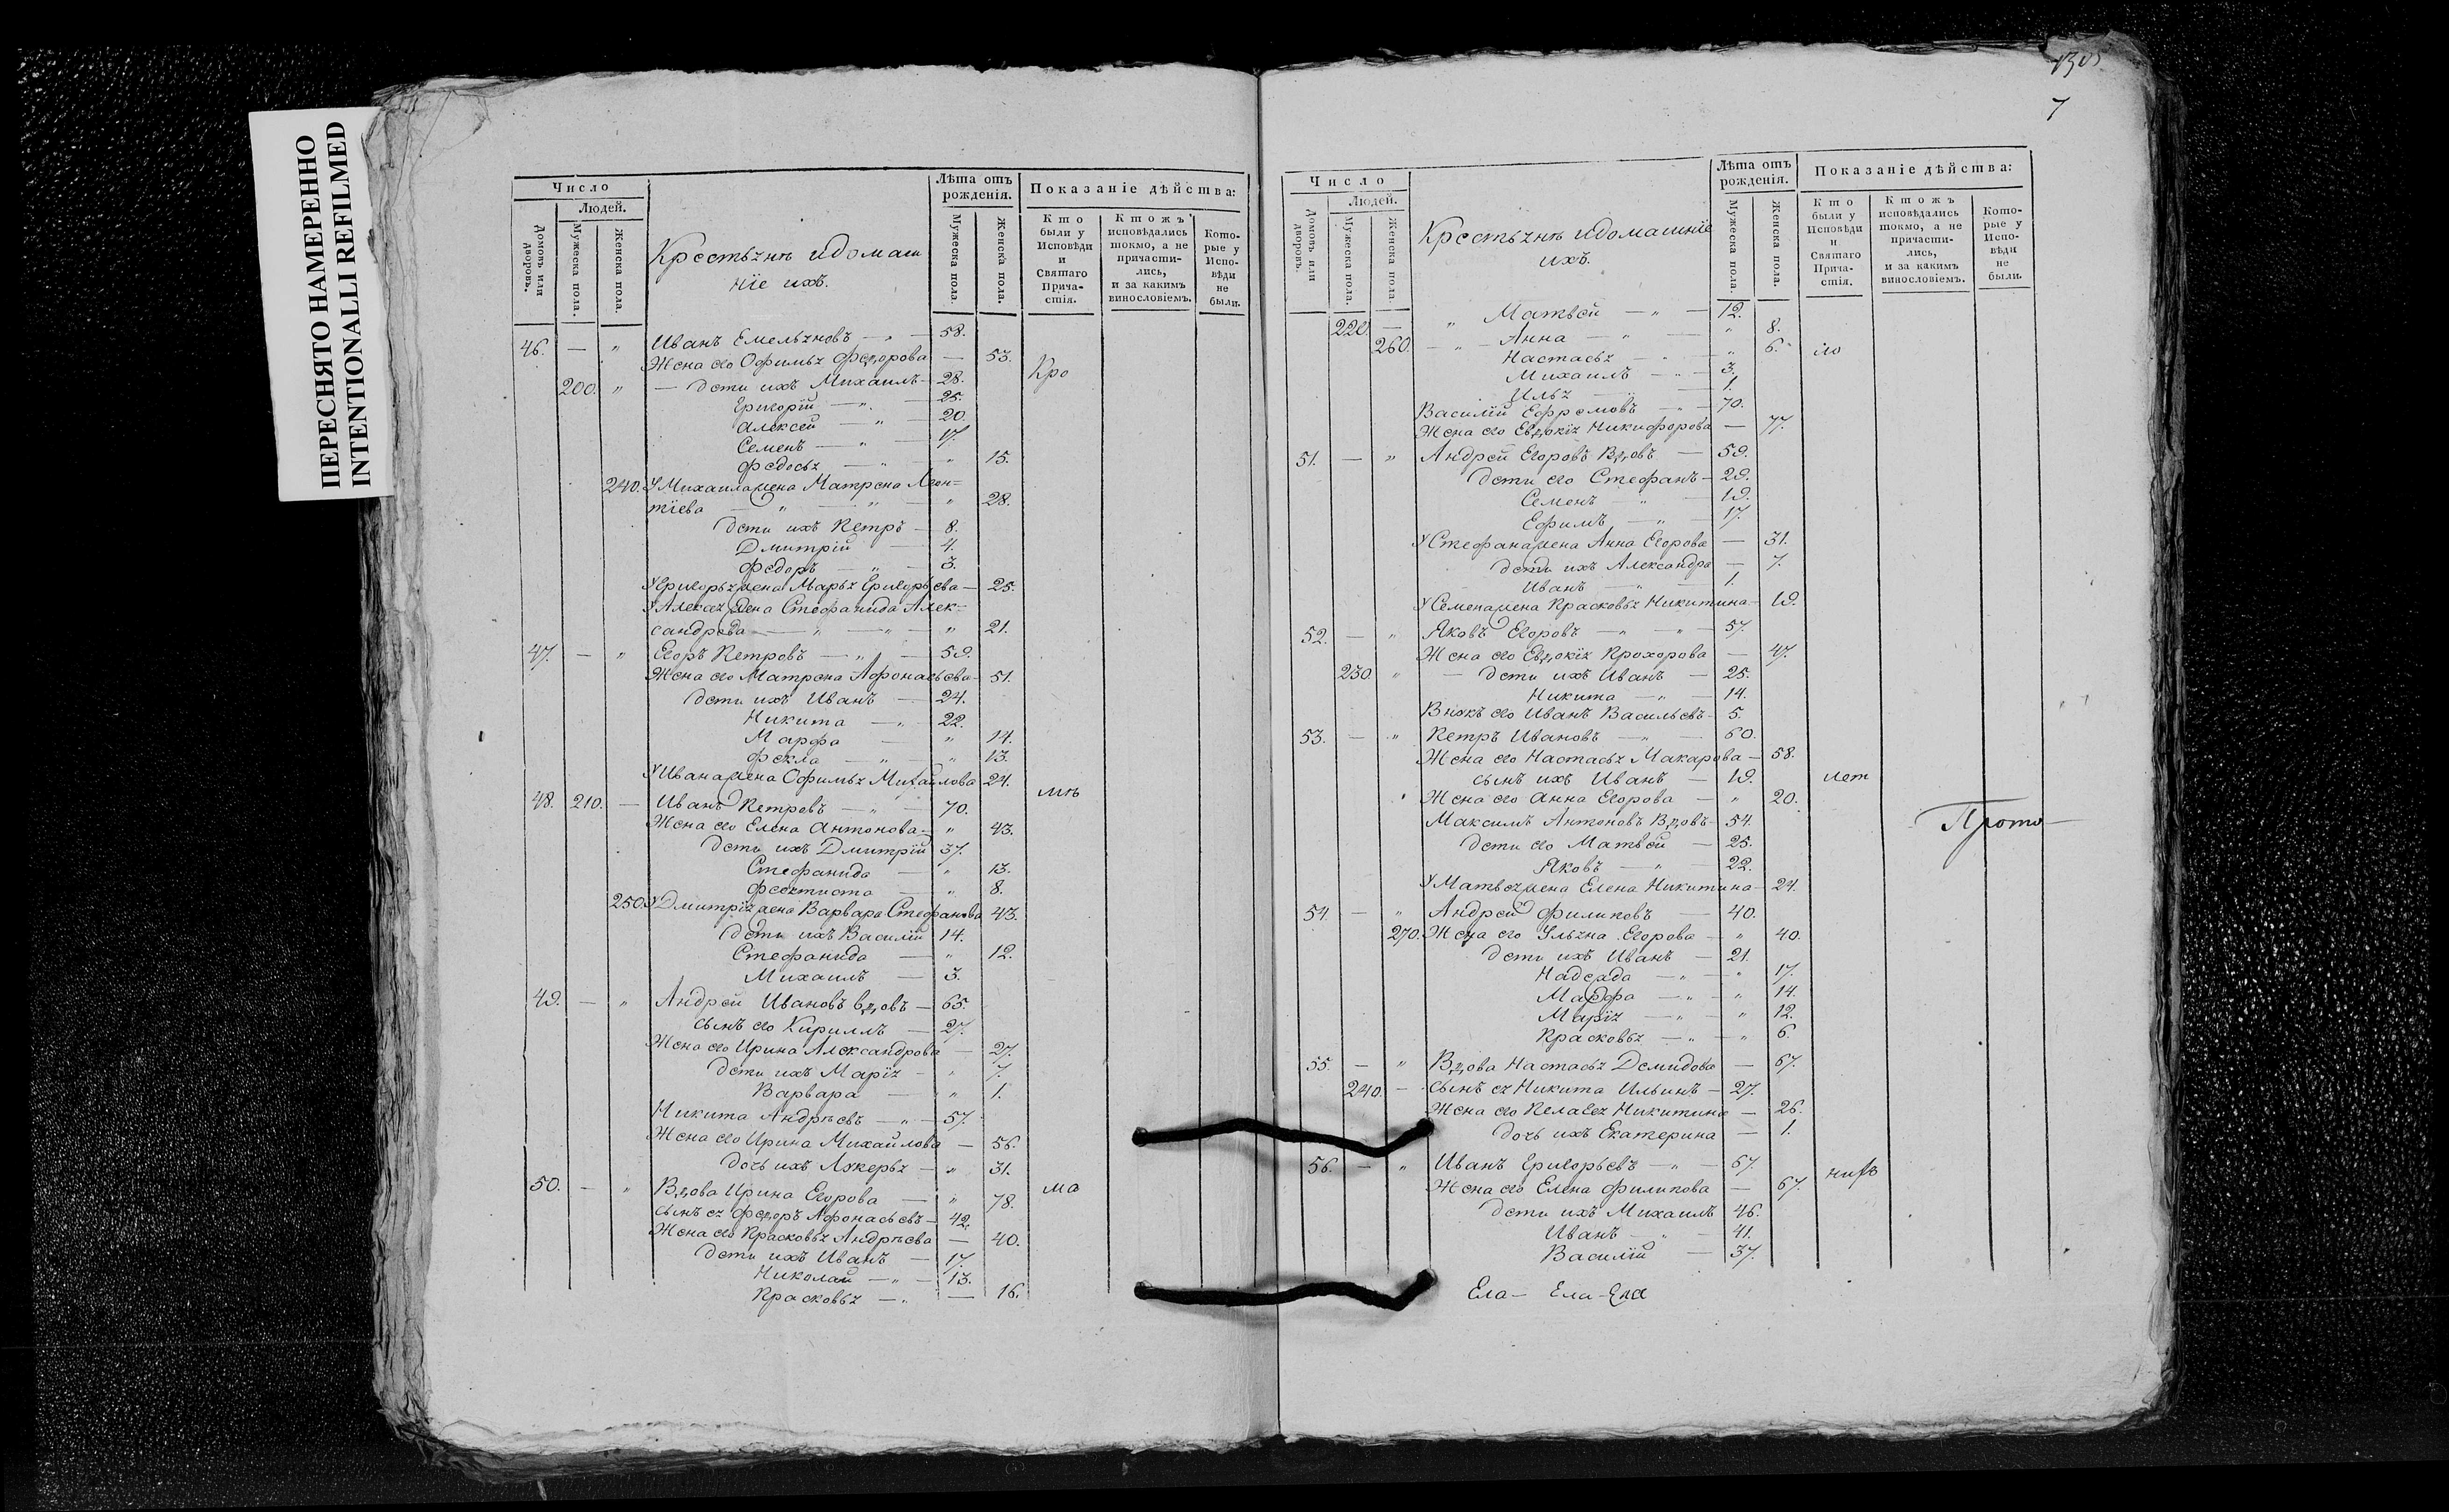 ПЕРЕСНЯТО НАМЕРЕННО
INTENTIONALLI REFILMED
Число
Людей.
Домовъ или дворовъ.
Мужеска пола.
Женска пола.
Крестьянѣ идомаш
ніе ихъ.
Лѣта отъ рожденія.
Мужеска пола.
Женска пола.
Показаніе дѣйства:
Кто были у Исповѣди и Святаго Прича- стія.
Ктожъ исповѣдались токмо, а не причасти- лись, и за какимъ винословіемъ.
Кото- рые у Испо- вѣди не были.
46. — „ Иванъ Емельяновъ — „ — 58.
Жена его Офимья Федорова — 53.
Кро
200. „ — дети ихъ Михаилъ — 28.
Григорій — „ — 25.
Алексей — „ — 20.
Семенъ — „ — 17.
Федосья — „ — „ 15.
240. У Михаила жена Матрена Леон=
тіева — „ — „ — „ 28.
дети ихъ Петръ — 8.
Дмитрій — 4.
Федоръ — „ — 3.
У Григорья жена Марья Григорьева — 25.
У Алексея жена Стефанида Алек=
сандрова — „ — „ — „ 21.
47. — „ Егоръ Петровъ — „ — 59.
Жена его Матрена Афонасьева — 51.
дети ихъ Иванъ — 24.
Никита — „ 22.
Марфа — „ 14.
Фекла — „ — „ 13.
У Ивана жена Офимья Михайлова 24.
мѣ
48. 210. — Иванъ Петровъ — „ 70.
Жена его Елена Антонова — „ 43.
дети ихъ Дмитрій 37.
Стефанида — „ 13.
Феоктиста — „ 8.
250. У Дмитрія жена Варвара Стефанова 43.
дети ихъ Василій 14.
Стефанида — „ 12.
Михаилъ — 3.
49. — „ Андрей Ивановъ вдовъ — 65.
сынъ его Кириллъ — 27.
Жена его Ирина Александрова — 27.
дети ихъ Марія — „ 7.
Варвара — „ 1.
Никита Андрѣевъ — „ — 57.
Жена его Ирина Михайлова — 56.
дочь ихъ Лукерья — „ 31.
50. — „ Вдова Ирина Егорова — „ 78.
ма
сынъ ея Федоръ Афонасьевъ — 42.
Жена его Прасковья Андрѣева — 40.
дети ихъ Иванъ — 17.
Николай — „ — 13.
Прасковья — „ — 16.
7
Число
Людей.
Домовъ или дворовъ.
Мужеска пола.
Женска пола.
Крестьянѣ идомашніе
ихъ.
Лѣта отъ рожденія.
Мужеска пола.
Женска пола.
Показаніе дѣйства:
Кто были у Исповѣди и Святаго Прича- стія.
Ктожъ исповѣдались токмо, а не причасти- лись, и за какимъ винословіемъ.
Кото- рые у Испо- вѣди не были.
220. — „ Матвей — „ — 12.
260. — „ — Анна — „ — „ 8.
Настасья — „ — „ 6.
ло
Михаилъ — „ — 3.
Илья — 1.
Василій Ефремовъ — „ — 70.
Жена его Евдокія Никифорова — 77.
51. — „ Андрей Егоровъ Вдовъ — 59.
дети его Стефанъ — 29.
Семенъ — „ — 19.
Ефимъ — „ — 17.
У Стефана жена Анна Егорова — 31.
дети ихъ Александра — 7.
Иванъ — „ — 1.
У Семена жена Прасковья Никитина — 19.
52. — „ Яковъ Егоровъ — „ — „ — 57.
Жена его Евдокія Прохорова — 47.
230. „ — дети ихъ Иванъ — 25.
Никита — „ — 14.
Внокъ его Иванъ Васильевъ — 5.
53. — „ Петръ Ивановъ — „ — 60.
Жена его Настасья Макарова — 58.
сынъ ихъ Иванъ — 19.
Жена его Анна Егорова — „ 20.
Максимъ Антоновъ Вдовъ — 54.
Прото—
дети его Матвей — 25.
Яковъ — „ — 22.
У Матвея жена Елена Никитина — 24.
54. — „ Андрей Филиповъ — 40.
270. Жена его Ульяна Егорова — „ 40.
дети ихъ Иванъ — 21.
Надежда — „ — „ 17.
Марфа — „ — „ 14.
Марія — „ — „ 12.
Прасковья — „ — „ 6.
55. — „ Вдова Настасья Демидова — 67.
240. — сынъ ея Никита Ильинъ — 27.
Жена его Пелагея Никитина — 26.
дочь ихъ Екатерина — 1.
56. — „ Иванъ Григорьевъ — „ — 67.
Жена его Елена Филипова — 67.
дети ихъ Михаилъ 46.
Иванъ — „ — 41.
Василій — 37.
Ела— Ела—Ела